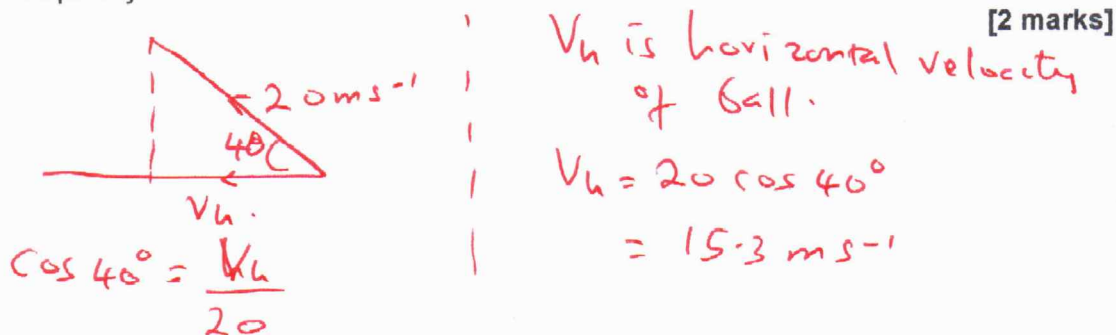 [2 marks]
20 ms⁻¹
40
Vh.
cos 40° = Vh / 20
Vh is horizontal velocity
of ball.
Vh = 20 cos 40°
= 15.3 ms⁻¹